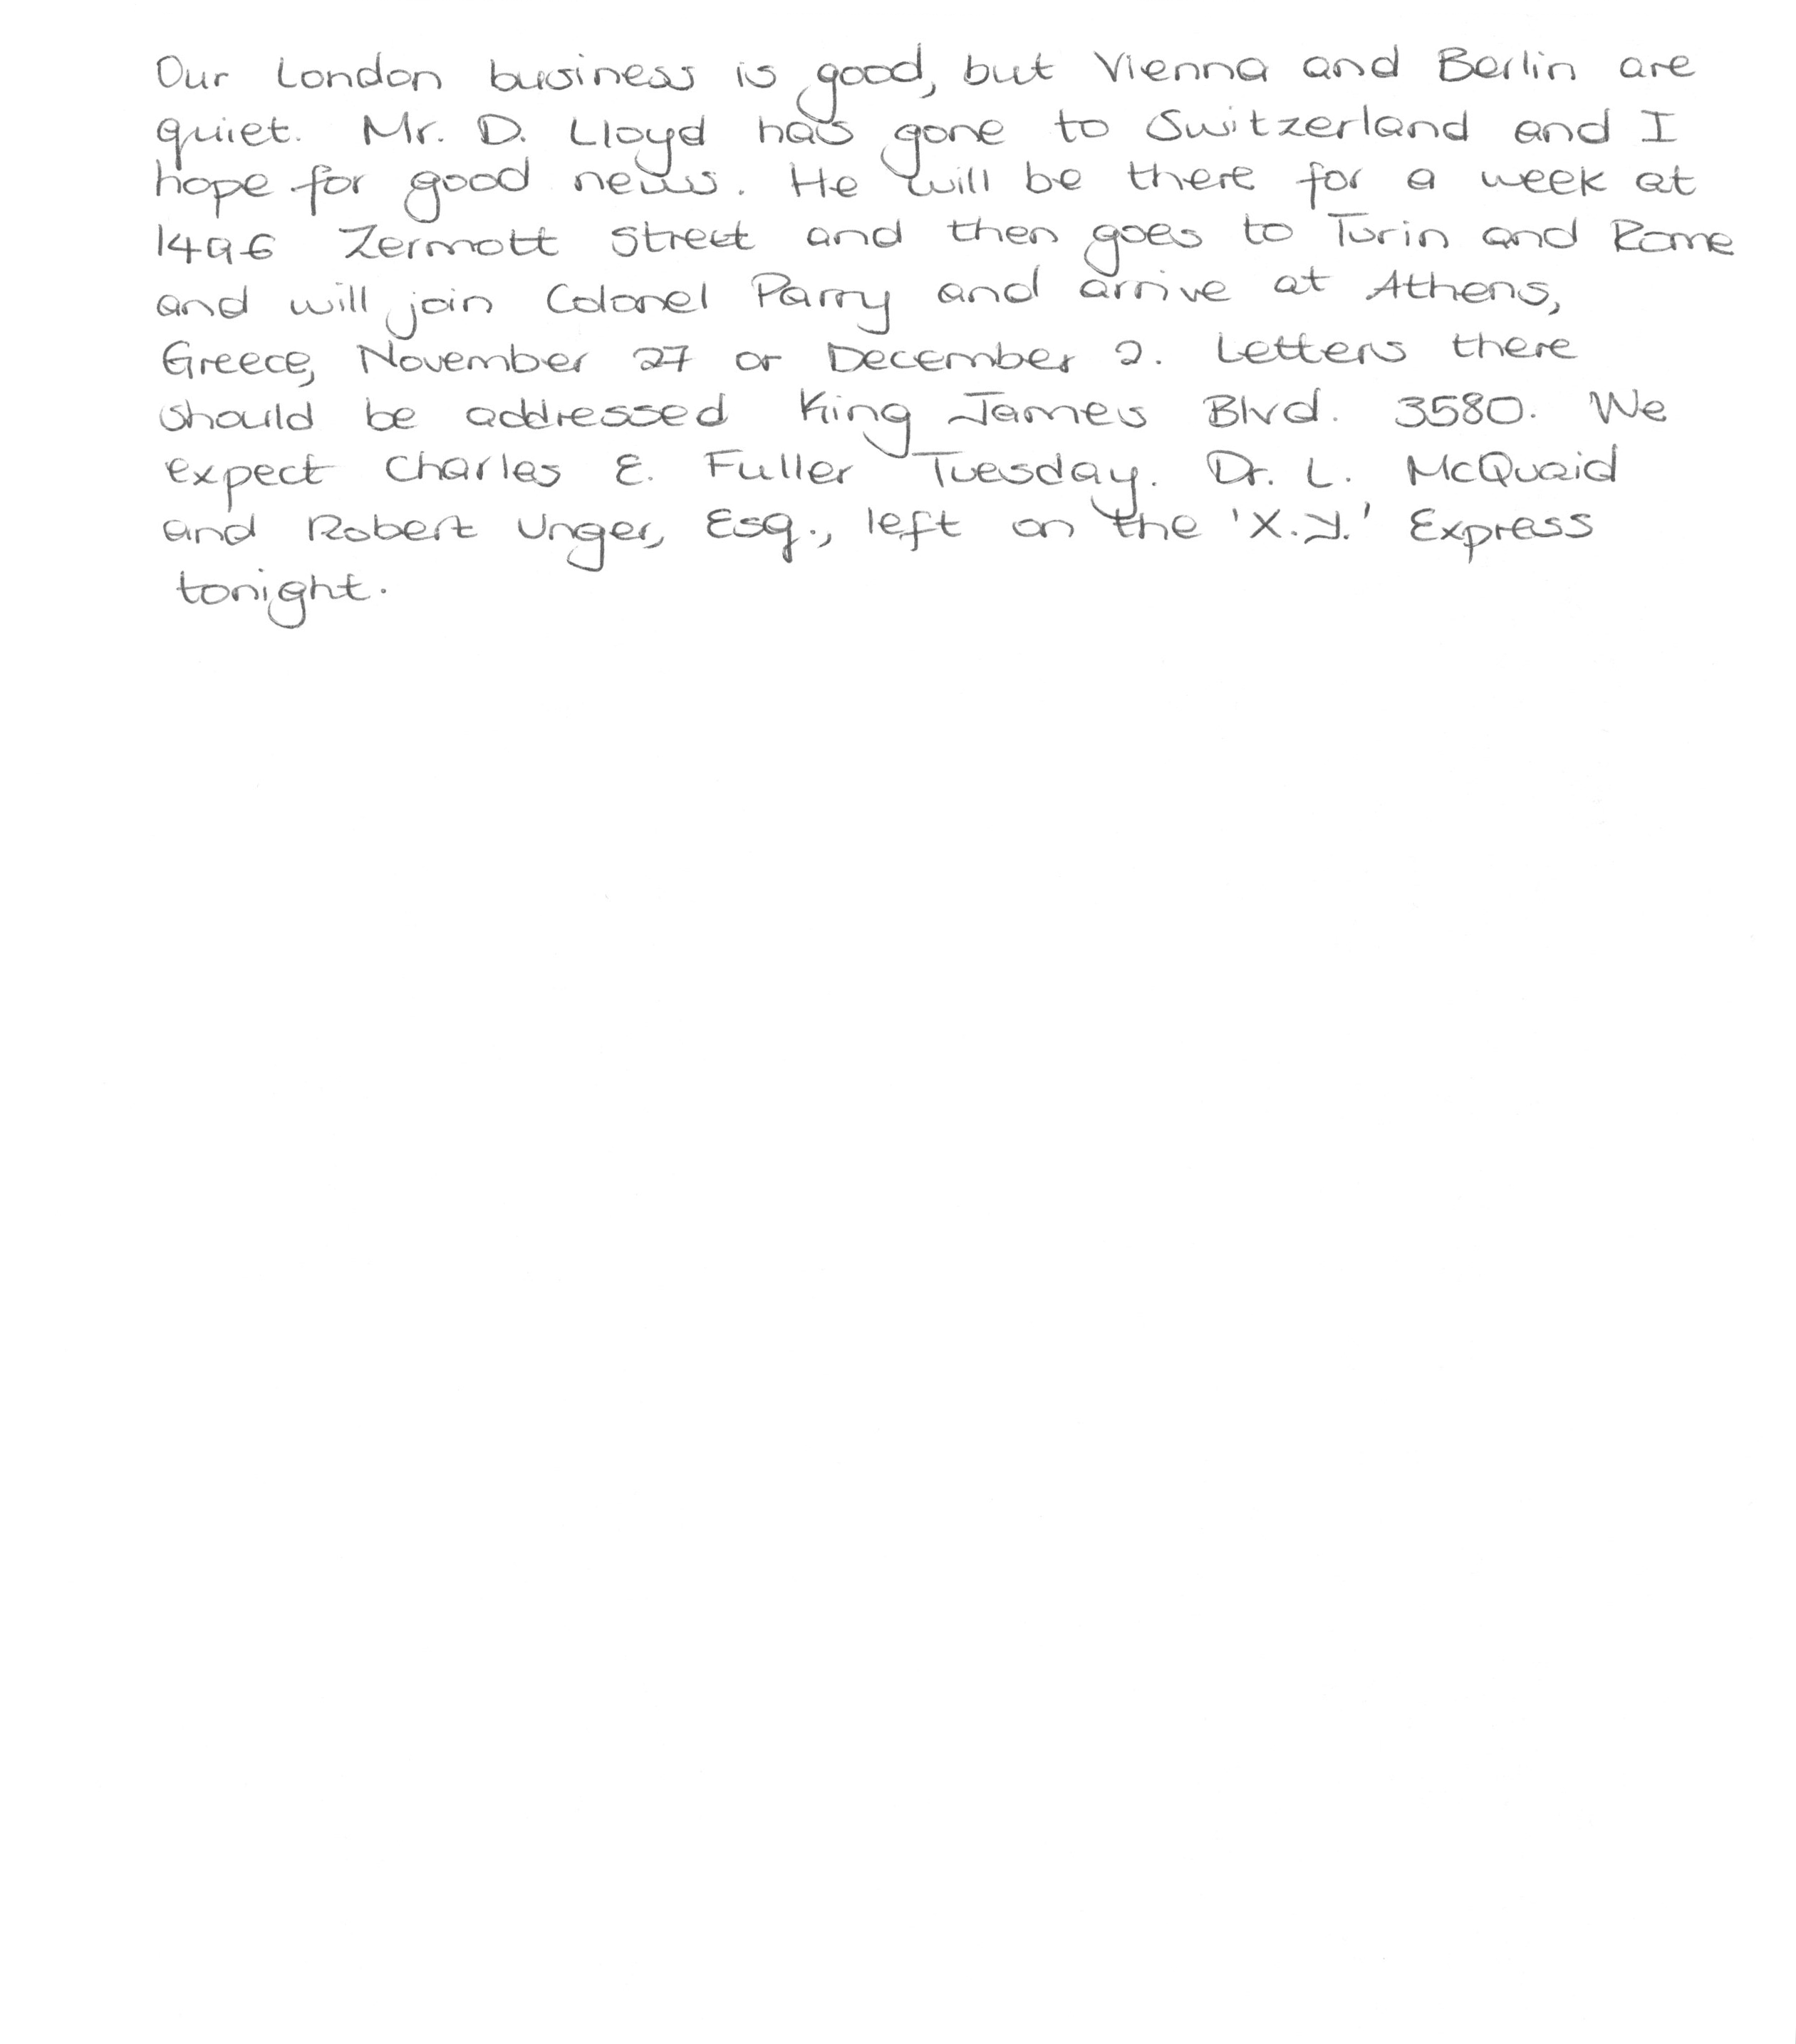 Our London business is good, but Vienna and Berlin are
quiet. Mr. D. Lloyd has gone to Switzerland and I
hope for good news. He will be there for a week at
1496 Zermott Street and then goes to Turin and Rome
and will join Colonel Parry and arrive at Athens,
Greece, November 27 or December 2. Letters there
should be addressed King James Blvd. 3580. We
expect Charles E. Fuller Tuesday. Dr. L. McQuaid
and Robert Unger, Esq., left on the 'X.Y.' Express
tonight.